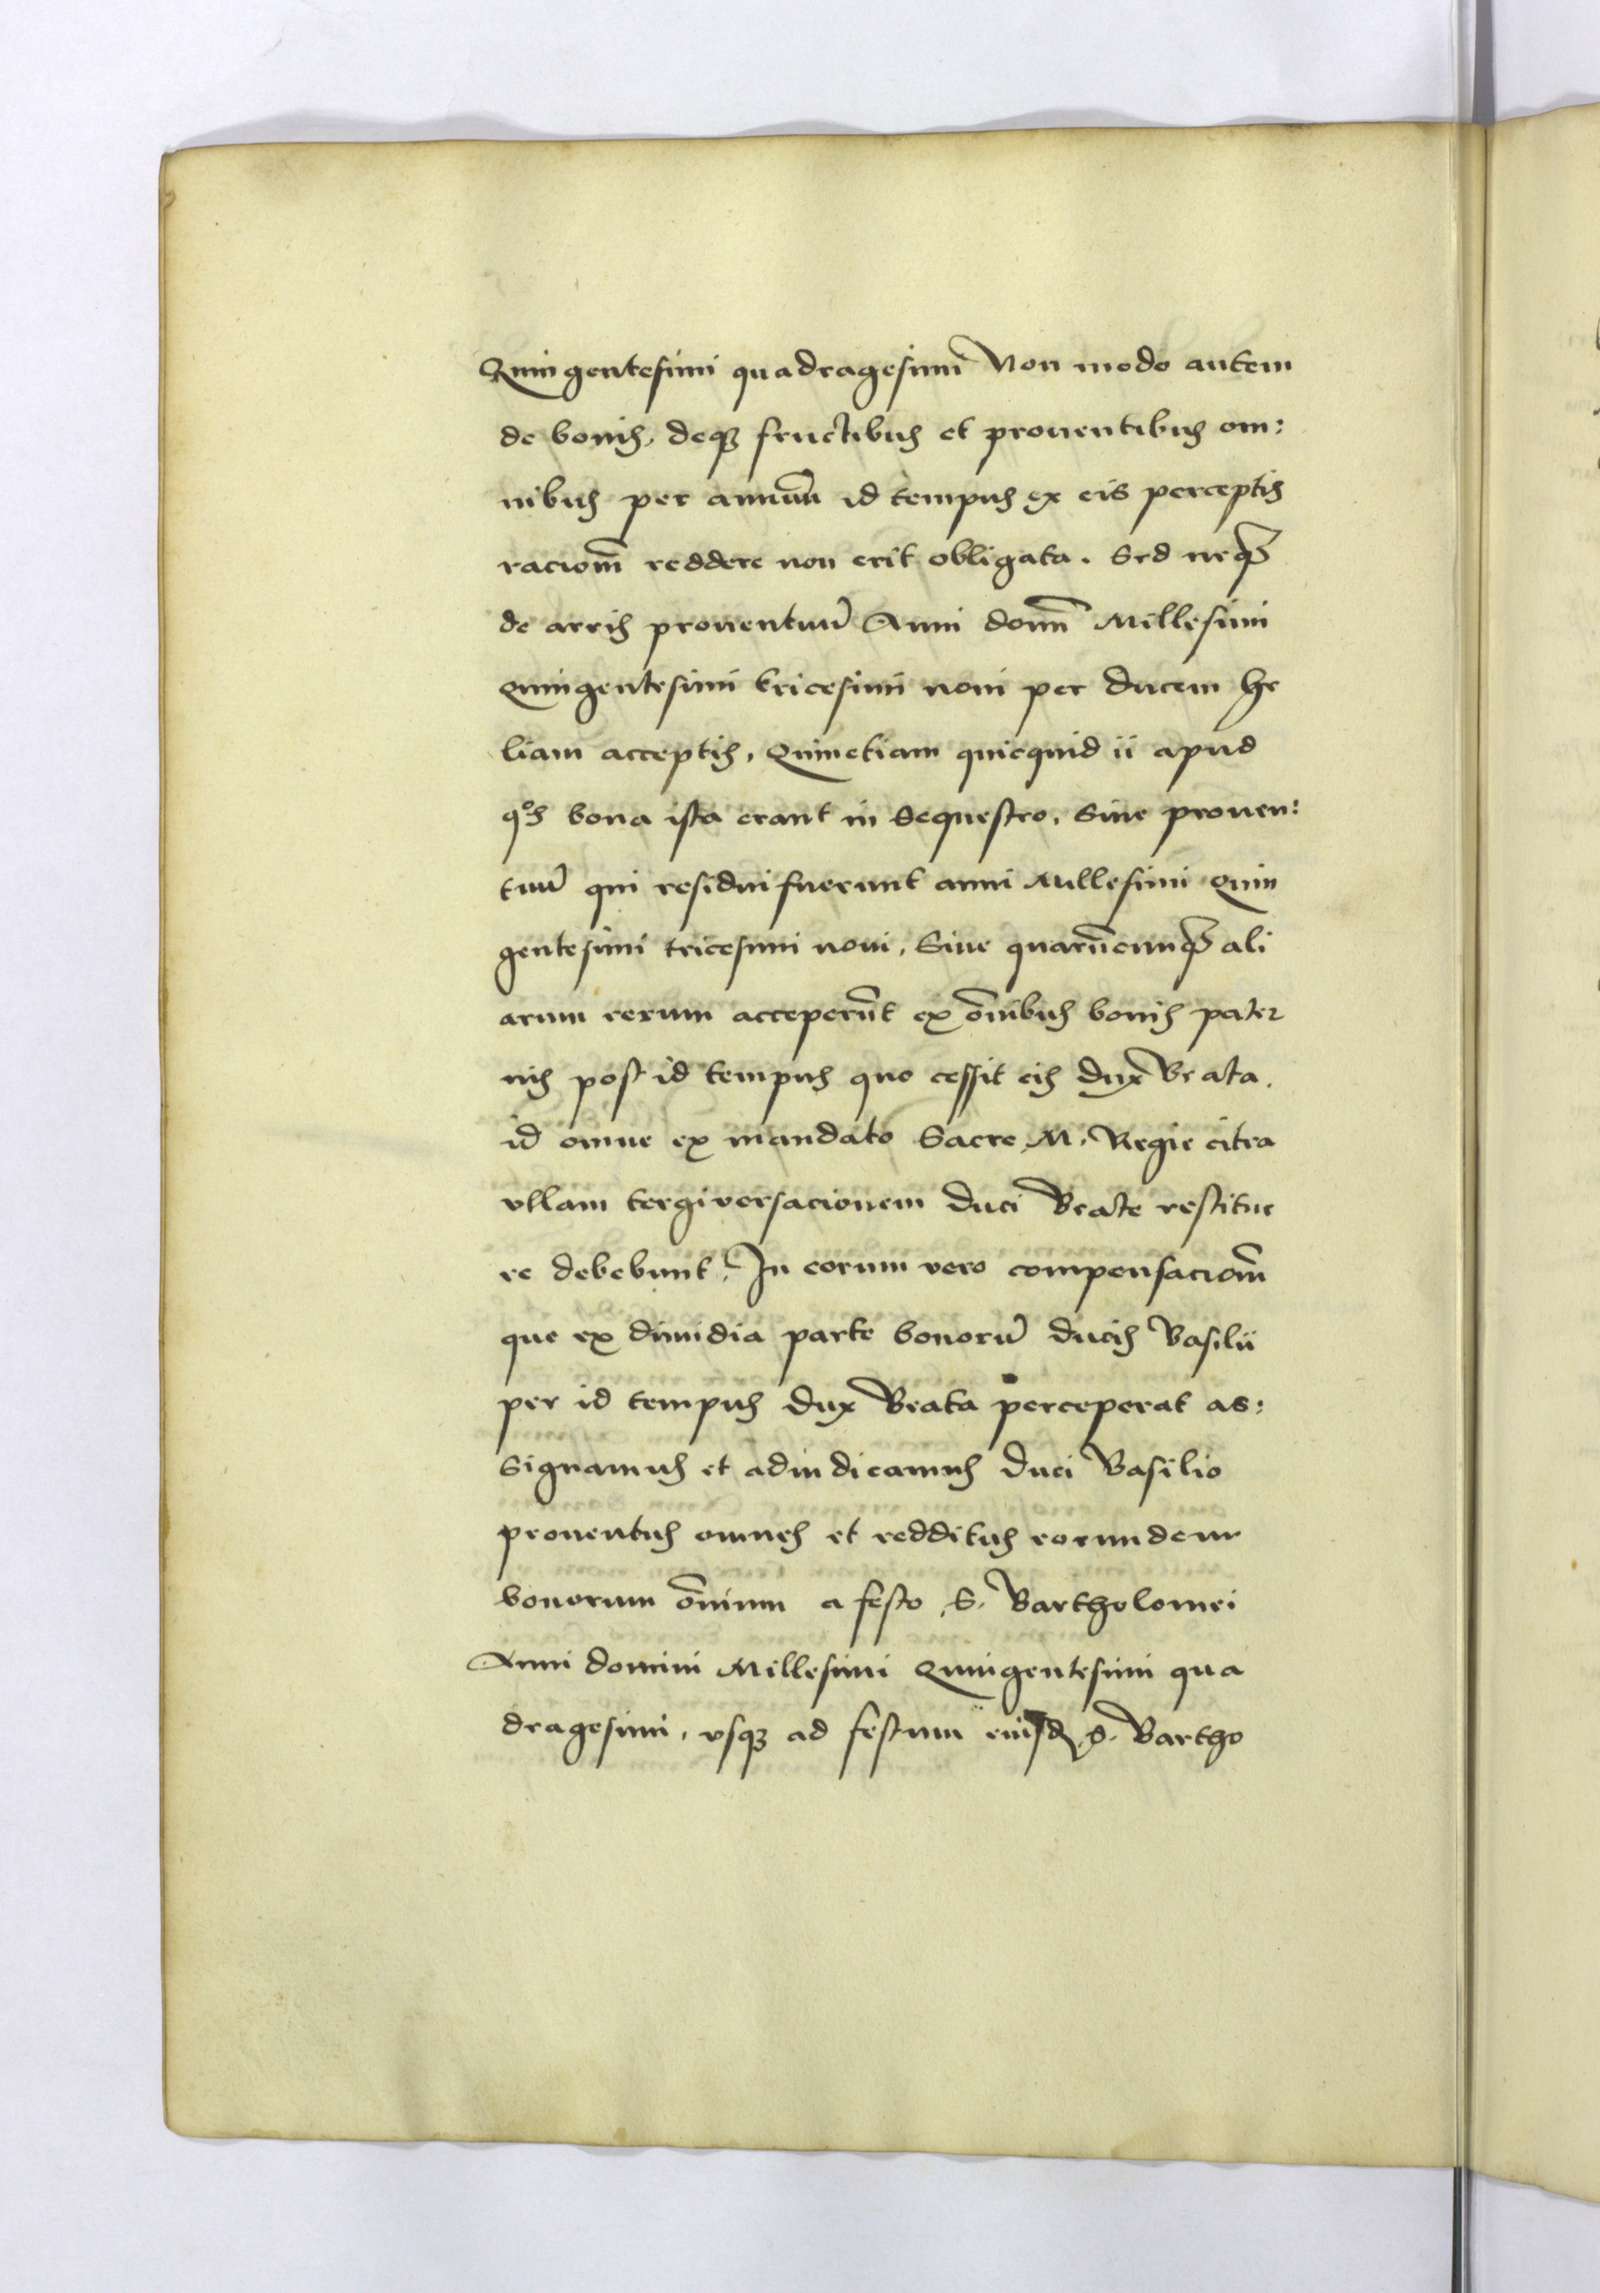 Quingentesimi quadragesim̄ Non modo autem
de bonis, deqȝ fructibus et prouentibus om:
nibus per annuū id tempus ex eis perceptis
raciom̄ reddere non erit obligata. Sed neqȝ
de arris prouentuū Anni domī Millesimi
Quingentesimi tricesimi noni per ducem he
liam acceptis, Quinetiam quicquid ii apud
qºs bona ista erant in sequestro, Siue prouen:
tuū qui residui fuerunt anni Millesimi Quin
gentesimi tricesimi noni, Siue quarūcunqȝ ali
arum rerum acceperūt ex oīnibus bonis pater
nis post id tempus quo cessit eis dux Beata.
id omne ex mandato Sacre M. Regie citra
vllam tergiversacionem duci Beate restitue
re debebunt, In eorum vero compensaciom̄
que ex dimidia parte bonorū ducis Basilii
per id tempus dux Beata perceperat as:
signamus et adiudicamus duci Basilio
prouentus omnes et redditus eorundem
bonorum oīnium a festo S. Bartholomei
Anni domini Millesimi Quingentesimi qua
dragesimi, vsqȝ ad festum eiusd. S. Bartho